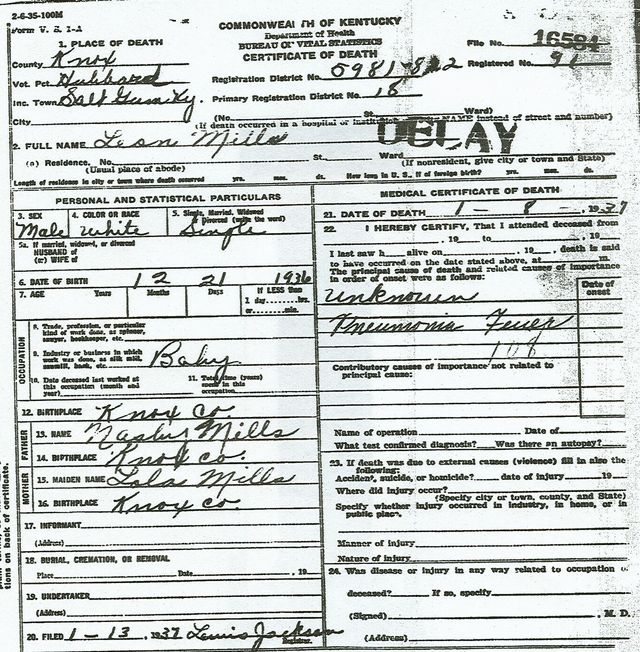 2-6-35-100M
Form V. S. 1-A
COMMONWEALTH OF KENTUCKY
Department of Health
BUREAU OF VITAL STATISTICS
CERTIFICATE OF DEATH
File No. 16584
Registered No. 91
1. PLACE OF DEATH
County Knox
Vot. Pct. Hubbard
Inc. Town Salt Gum Ky.
City
Registration District No. 5981-822
Primary Registration District No. 18
(No. St. Ward)
(If death occurred in a hospital or institution, NAME instead of street and number)
DELAY
2. FULL NAME Leon Mills
(a) Residence. No. St. Ward
(Usual place of abode) (If nonresident, give city or town and State)
Length of residence in city or town where death occurred yrs. mos. ds. How long in U. S., if of foreign birth? yrs. mos. ds.
PERSONAL AND STATISTICAL PARTICULARS
3. SEX 4. COLOR OR RACE 5. Single, Married, Widowed or Divorced (write the word)
Male White Single
5a. If married, widowed, or divorced
HUSBAND of
(or) WIFE of
6. DATE OF BIRTH 12 21 1936
7. AGE Years Months Days If LESS than
1 day, hrs.
or min.
OCCUPATION
8. Trade, profession, or particular
kind of work done, as spinner,
sawyer, bookkeeper, etc.
9. Industry or business in which
work was done, as silk mill,
sawmill, bank, etc. Baby
10. Date deceased last worked at
this occupation (month and
year)
11. Total time (years)
spent in this
occupation
12. BIRTHPLACE Knox co.
FATHER
13. NAME Mills
14. BIRTHPLACE Knox co.
MOTHER
15. MAIDEN NAME Lola Mills
16. BIRTHPLACE Knox co
17. INFORMANT
(Address)
18. BURIAL, CREMATION, OR REMOVAL
Place Date , 19
19. UNDERTAKER
(Address)
20. FILED 1-13, 1937 Lewis Jackson
Registrar.
MEDICAL CERTIFICATE OF DEATH
21. DATE OF DEATH 1 - 8 - , 1937
22. I HEREBY CERTIFY, That I attended deceased from
, 19 to , 19
I last saw h alive on , 19 , death is said
to have occurred on the date stated above, at m.
The principal cause of death and related causes of importance
in order of onset were as follows:
Date of
onset
Unknown
Pneumonia Fever
108
Contributory causes of importance not related to
principal cause:
Name of operation Date of
What test confirmed diagnosis? Was there an autopsy?
23. If death was due to external causes (violence) fill in also the
following:
Accident, suicide, or homicide? date of injury 19
Where did injury occur?
(Specify city or town, county, and State)
Specify whether injury occurred in industry, in home, or in
public place.
Manner of injury
Nature of injury
24. Was disease or injury in any way related to occupation of
deceased? If so, specify
(Signed) , M. D.
(Address)
tions on back of certificate.